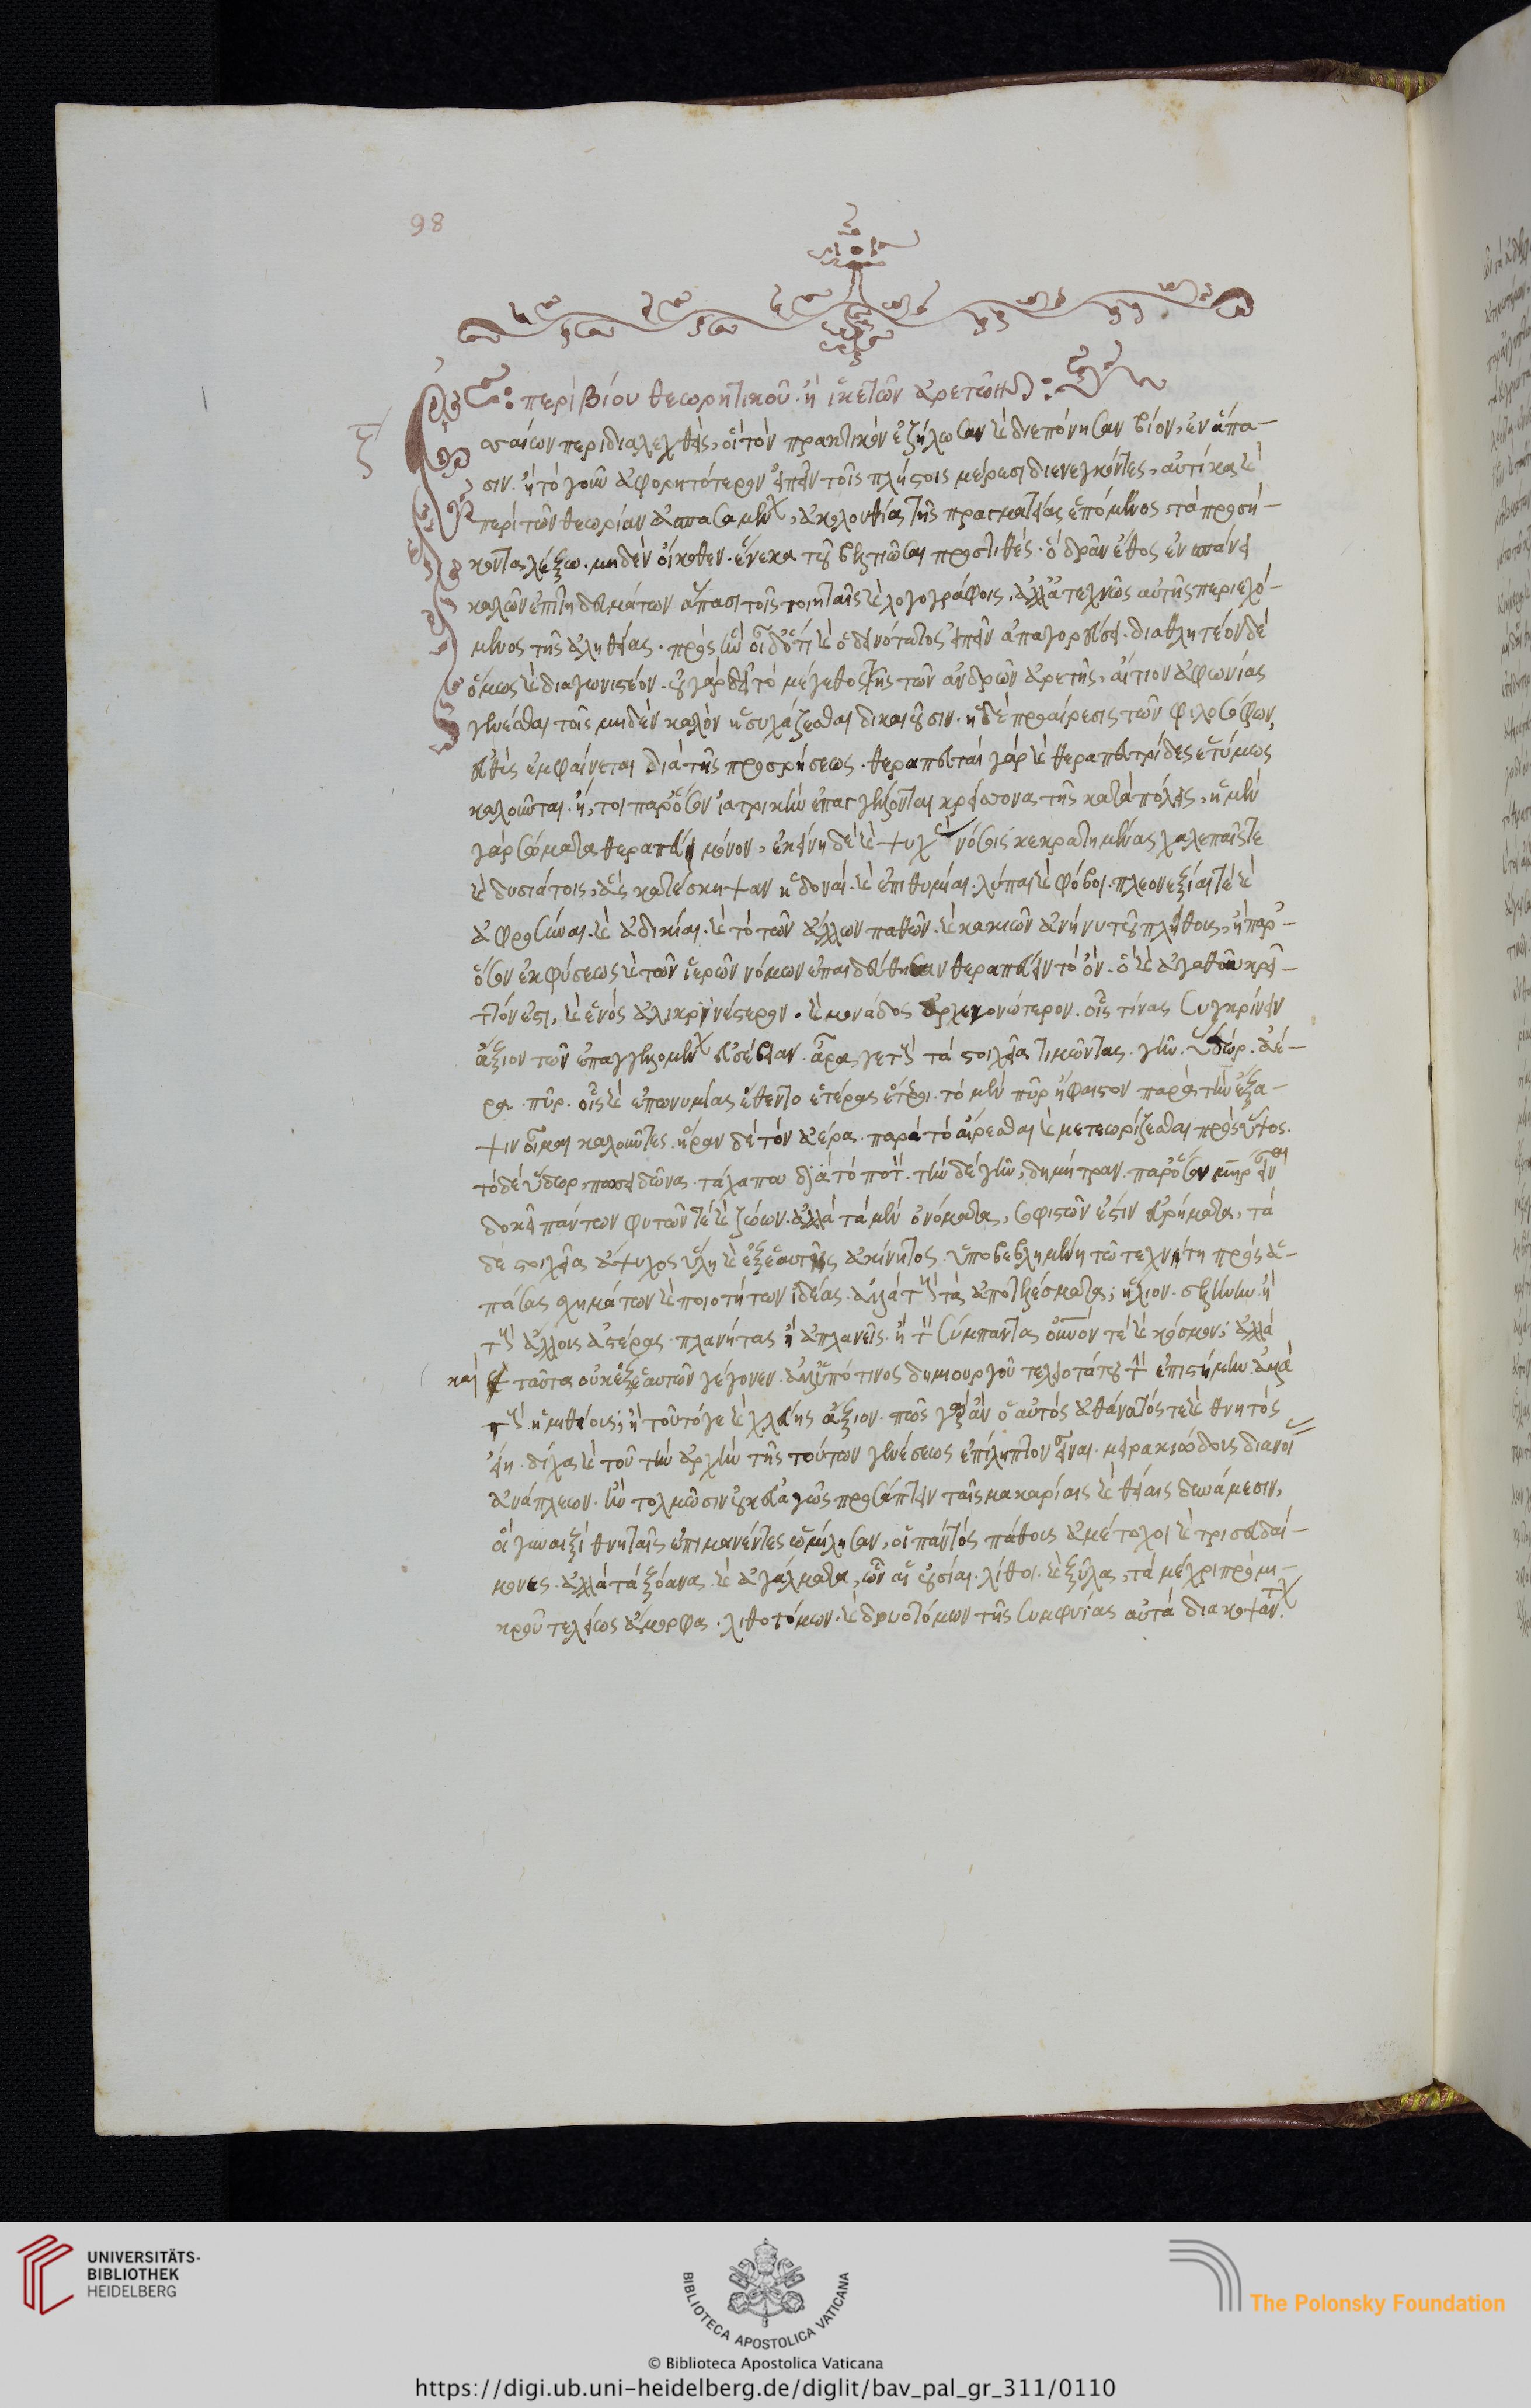 98
περὶ βίου θεωρητικοῦ· ἢ ἱκετῶν ἀρετῶν:
ξ
ἐσσαίων περιδιαλεχθεὶς, οἳ τὸν πρακτικὸν ἐζήλωσαν καὶ διεπόνησαν βίον, ἐν ἅπα-
σιν· ἢ τὸ γοῦν ἀφορητότερον εἰπεῖν τοῖς πλήστοις μέρεσι διενεγκόντες, αὐτίκα καὶ
περὶ τῶν θεωρίαν ἀσπασαμένων, ἀκολουθίας τῆς πραγματείας ἑπόμενος, τὰ προσή-
κοντα λέξω. μηδὲν οἴκοθεν· ἕνεκα τοῦ βελτιῶσαι προστιθείς· ὃ δρᾶν ἔθος ἐν σπάνει
καλῶν ἐπιτηδευμάτων ἅπασι τοῖς ποιηταῖς καὶ λογογράφοις. ἀλλ' ἀτεχνῶς αὐτῆς περιεχό-
μενος τῆς ἀληθείας. πρὸς ἣν οἶδ' ὅτι καὶ ὁ δεινότατος εἰπεῖν ἀπαγορεύσει. διαθλητέον δὲ
ὅμως καὶ διαγωνιστέον. οὐ γὰρ δεῖ τὸ μέγεθος τῆς τῶν ἀνδρῶν ἀρετῆς, αἴτιον ἀφωνίας
γενέσθαι τοῖς μηδὲν καλὸν ἡσυχάζεσθαι δικαιοῦσιν. ἡ δὲ προαίρεσις τῶν φιλοσόφων,
εὐθὺς ἐμφαίνεται διὰ τῆς προσρήσεως. θεραπευταὶ γὰρ καὶ θεραπευτρίδες ἐτύμως
καλοῦνται. ἤ, τοι παρόσον ἰατρικὴν ἐπαγγέλλονται κρείσσονα τῆς κατὰ πόλεις, ἡ μὲν
γὰρ σώματα θεραπεύει μόνον, ἐκείνη δὲ καὶ ψυχὰς νόσοις κεκρατημένας χαλεπαῖς τε
καὶ δυσιάτοις, ἃς κατέσκηψαν ἡδοναί. καὶ ἐπιθυμίαι. λύπαι καὶ φόβοι. πλεονεξίαι τε καὶ
ἀφροσύναι. καὶ ἀδικίαι. καὶ τὸ τῶν ἄλλων παθῶν. καὶ κακιῶν ἀνήνυτου πλήθους, ἢ παρ-
όσον ἐκ φύσεως καὶ τῶν ἱερῶν νόμων ἐπαιδεύθησαν θεραπεύειν τὸ ὄν. ὃ καὶ ἀγαθοῦ κρεῖ-
ττόν ἐστι, καὶ ἑνὸς εἰλικρινέστερον. καὶ μονάδος ἀρχεγονώτερον. οἷς τίνας συγκρίνειν
ἄξιον τῶν ἐπαγγελλομένων εὐσέβειαν. ἆρα γε τοὺς τὰ στοιχεῖα τιμῶντας. γῆν. ὕδωρ. ἀέ-
ρα. πῦρ. οἷς καὶ ἐπωνυμίας ἔθεντο ἑτέρας ἕτεροι. τὸ μὲν πῦρ ἥφαιστον παρὰ τὴν ἔξα-
ψιν οἶμαι καλοῦντες. ἥραν δὲ τὸν ἀέρα. παρὰ τὸ αἴρεσθαι καὶ μετεωρίζεσθαι πρὸς ὕψος.
τὸ δὲ ὕδωρ, ποσειδῶνα. τάχα που διὰ τὸ ποτ. τὴν δὲ γῆν, δήμητραν. παρόσον μήτηρ εἶναι
δοκεῖ πάντων φυτῶν τε καὶ ζώων. ἀλλὰ τὰ μὲν ὀνόματα, σοφιστῶν ἐστὶν εὑρήματα, τὰ
δὲ στοιχεῖα ἄψυχος ὕλη καὶ ἐξ ἑαυτῆς ἀκίνητος. ὑποβεβλημένη τῷ τεχνίτη πρὸς ἁ-
πάσας σχημάτων καὶ ποιοτήτων ἰδέας. ἀλλὰ τοὺς τὰ ἀποτελέσματα; ἥλιον. σελήνην ἢ
τοὺς ἄλλους ἀστέρας πλανήτας ἢ ἀπλανεῖς. ἢ τὸν σύμπαντα οὐρανόν τε καὶ κόσμον; ἀλλὰ
καὶ ταῦτα οὐκ ἐξ ἑαυτῶν γέγονεν. ἀλλ' ὑπό τινος δημιουργοῦ τελειοτάτου τὴν ἐπιστήμην. ἀλλὰ
τοὺς ἡμιθέους; ἢ τοῦτό γε καὶ χλεύης ἄξιον. πῶς γὰρ ἂν ὁ αὐτὸς ἀθάνατός τε καὶ θνητὸς
εἴη. δίχα καὶ τοῦ τὴν ἀρχὴν τῆς τούτων γενέσεως ἐπίληπτον εἶναι. μειρακιώδους διανοί
ἀνάπλεων. ἣν τολμῶσιν οὐκ εὐαγῶς προσάπτειν ταῖς μακαρίαις καὶ θείαις δυνάμεσιν,
οἳ γυναιξὶ θνηταῖς ἐπιμανέντες ὡμίλησαν, οἱ παντὸς πάθους ἀμέτοχοι καὶ τρισευδαί-
μονες. ἀλλὰ τὰ ξόανα. καὶ ἀγάλματα, ὧν αἱ οὐσίαι. λίθοι. καὶ ξύλα, τὰ μέχρι πρὸ μι-
κροῦ τελείως ἄμορφα. λιθοτόμων. καὶ δρυοτόμων τῆς συμφυίας αὐτὰ διακοψάντων.
UNIVERSITÄTS-
BIBLIOTHEK
HEIDELBERG
BIBLIOTECA APOSTOLICA VATICANA
The Polonsky Foundation
© Biblioteca Apostolica Vaticana
https://digi.ub.uni-heidelberg.de/diglit/bav_pal_gr_311/0110